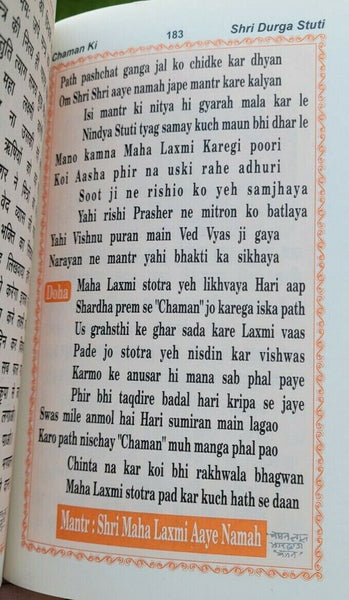 Chaman Ki 183 Shri Durga Stuti
Path pashchat ganga jal ko chidke kar dhyan
Om Shri Shri aaye namah jape mantr kare kalyan
Isi mantr ki nitya hi gyarah mala kar le
Nindya Stuti tyag samay kuch maun bhi dhar le
Mano kamna Maha Laxmi Karegi poori
Koi Aasha phir na uski rahe adhuri
Soot ji ne rishio ko yeh samjhaya
Yahi rishi Prasher ne mitron ko batlaya
Yahi Vishnu puran main Ved Vyas ji gaya
Narayan ne mantr yahi bhakti ka sikhaya
Doha Maha Laxmi stotra yeh likhvaya Hari aap
Shardha prem se "Chaman" jo karega iska path
Us grahsthi ke ghar sada kare Laxmi vaas
Pade jo stotra yeh nisdin kar vishwas
Karmo ke anusar hi mana sab phal paye
Phir bhi taqdire badal hari kripa se jaye
Swas mile anmol hai Hari sumiran main lagao
Karo path nischay "Chaman" muh manga phal pao
Chinta na kar koi bhi rakhwala bhagwan
Maha Laxmi stotra pad kar kuch hath se daan
Mantr : Shri Maha Laxmi Aaye Namah